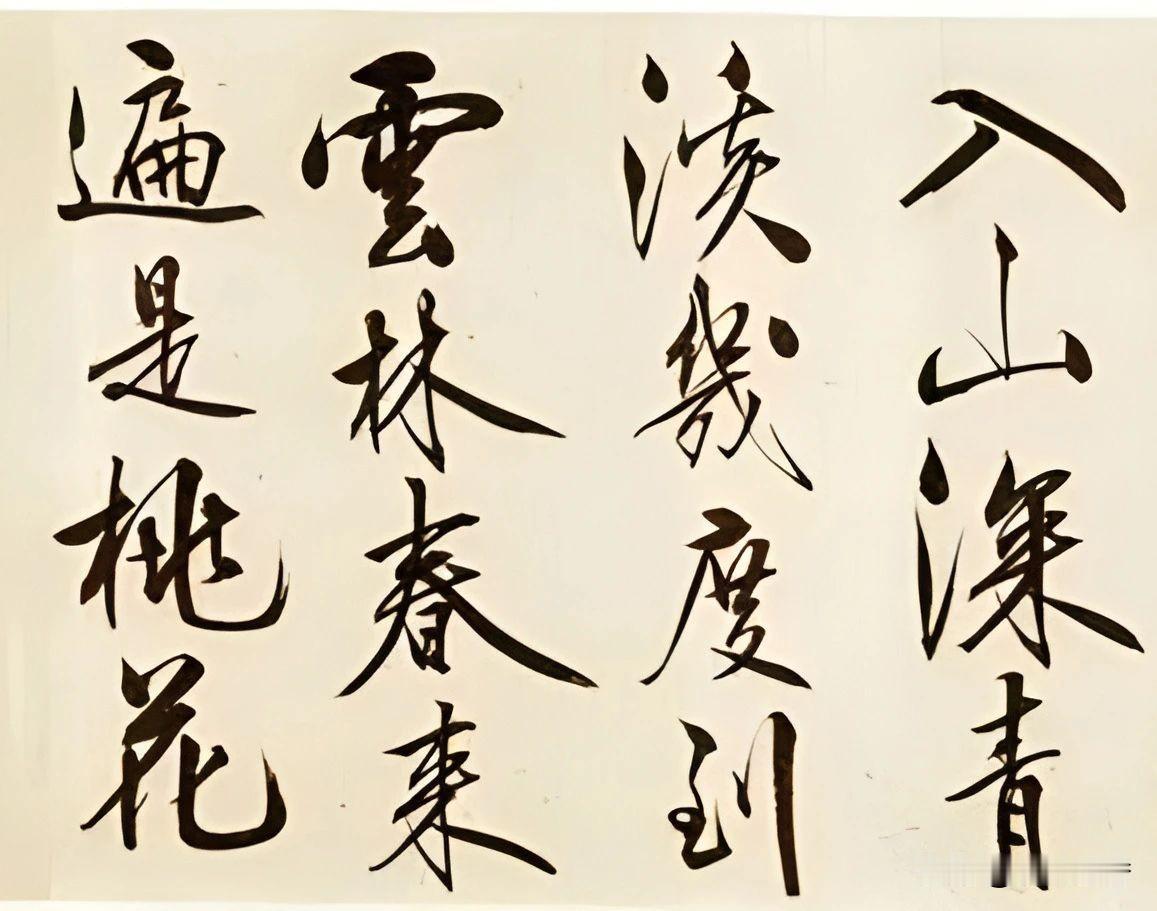 入山深青
溪幾度到
雲林春来
遍是桃花